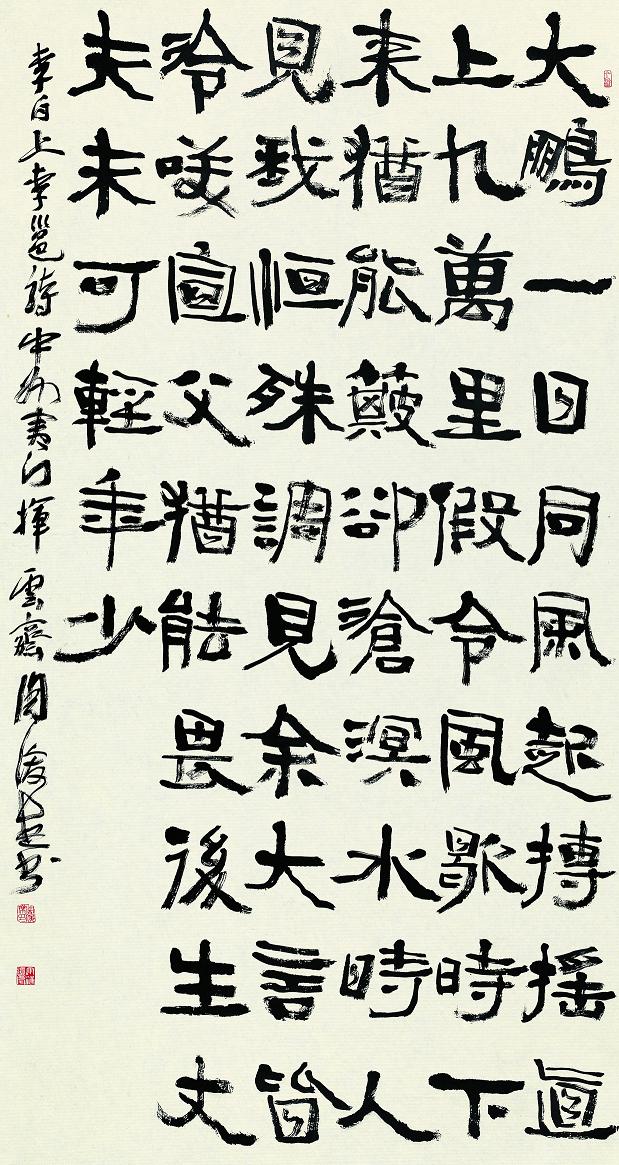 大鵬一日同風起摶搖直
上九萬里假令風歇時下
來猶能簸卻滄溟水時人
見我恒殊調見余大言皆
冷咲宣父猶能畏後生丈
夫未可輕年少
李白上李邕詩中州夷門揮雲齋周俊杰书